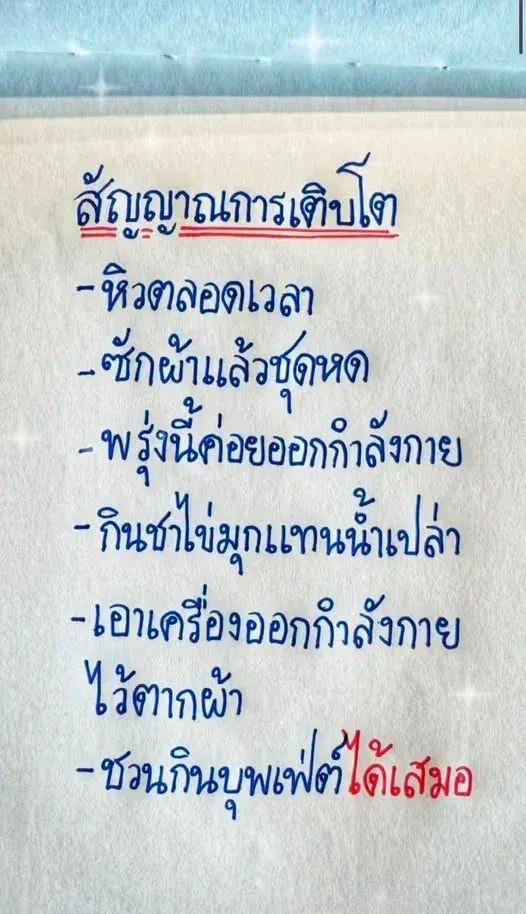 สัญญาณการเติบโต
-หิวตลอดเวลา
-ซักผ้าแล้วชุดหด
-พรุ่งนี้ค่อยออกกำลังกาย
-กินชาไข่มุกแทนน้ำเปล่า
-เอาเครื่องออกกำลังกาย
ไว้ตากผ้า
-ชวนกินบุพเฟ่ต์ได้เสมอ